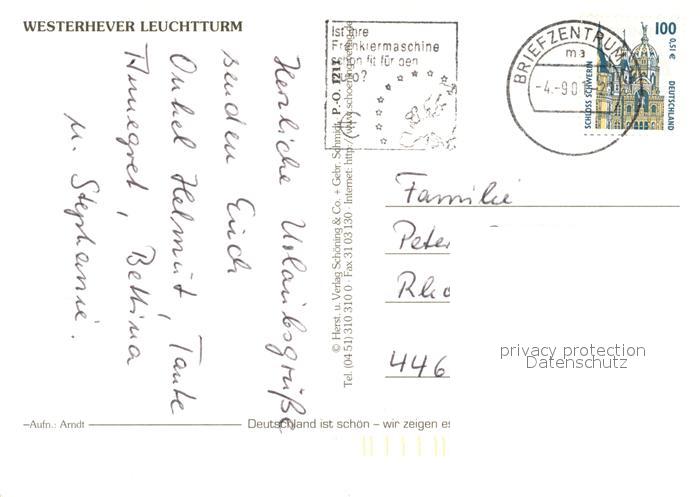 WESTERHEVER LEUCHTTURM
Herzliche Urlaubsgrüße
senden Euch
Onkel Helmut, Tante
Annegret, Bettina
u. Stephanie.
Ist Ihre
Frankiermaschine
schon fit für den
BRIEFZENTRUM
-4.-9.0
100
0,51 €
SCHLOSS SCHWERIN
DEUTSCHLAND
© Herst. u. Verlag Schöning & Co. + Gebr. Schmidt
Tel. (04 51) 310 310 0 · Fax 31 03 130 · Internet: http://www.schoening
Familie
Peter
446
privacy protection
Datenschutz
–Aufn.: Arndt
Deutschland ist schön – wir zeigen es